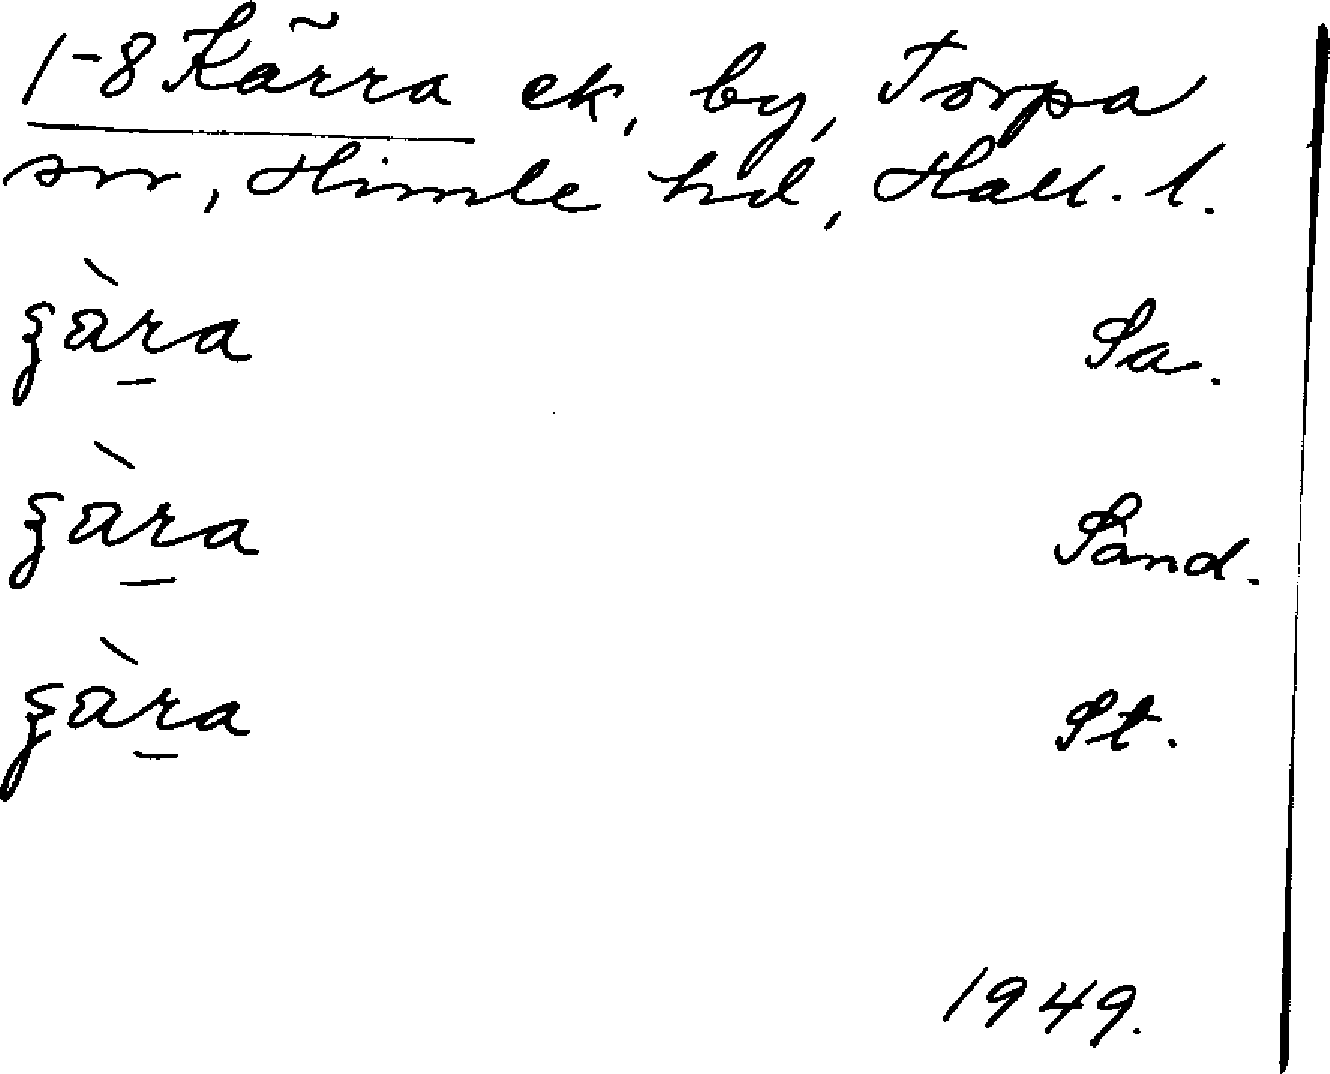 1-8 Kärra ek, by, Torpa
sn, Himle hd, Hall. l.
ʒàr̲a Sa.
ʒàr̲a Sand.
ʒàr̲a St.
1949.